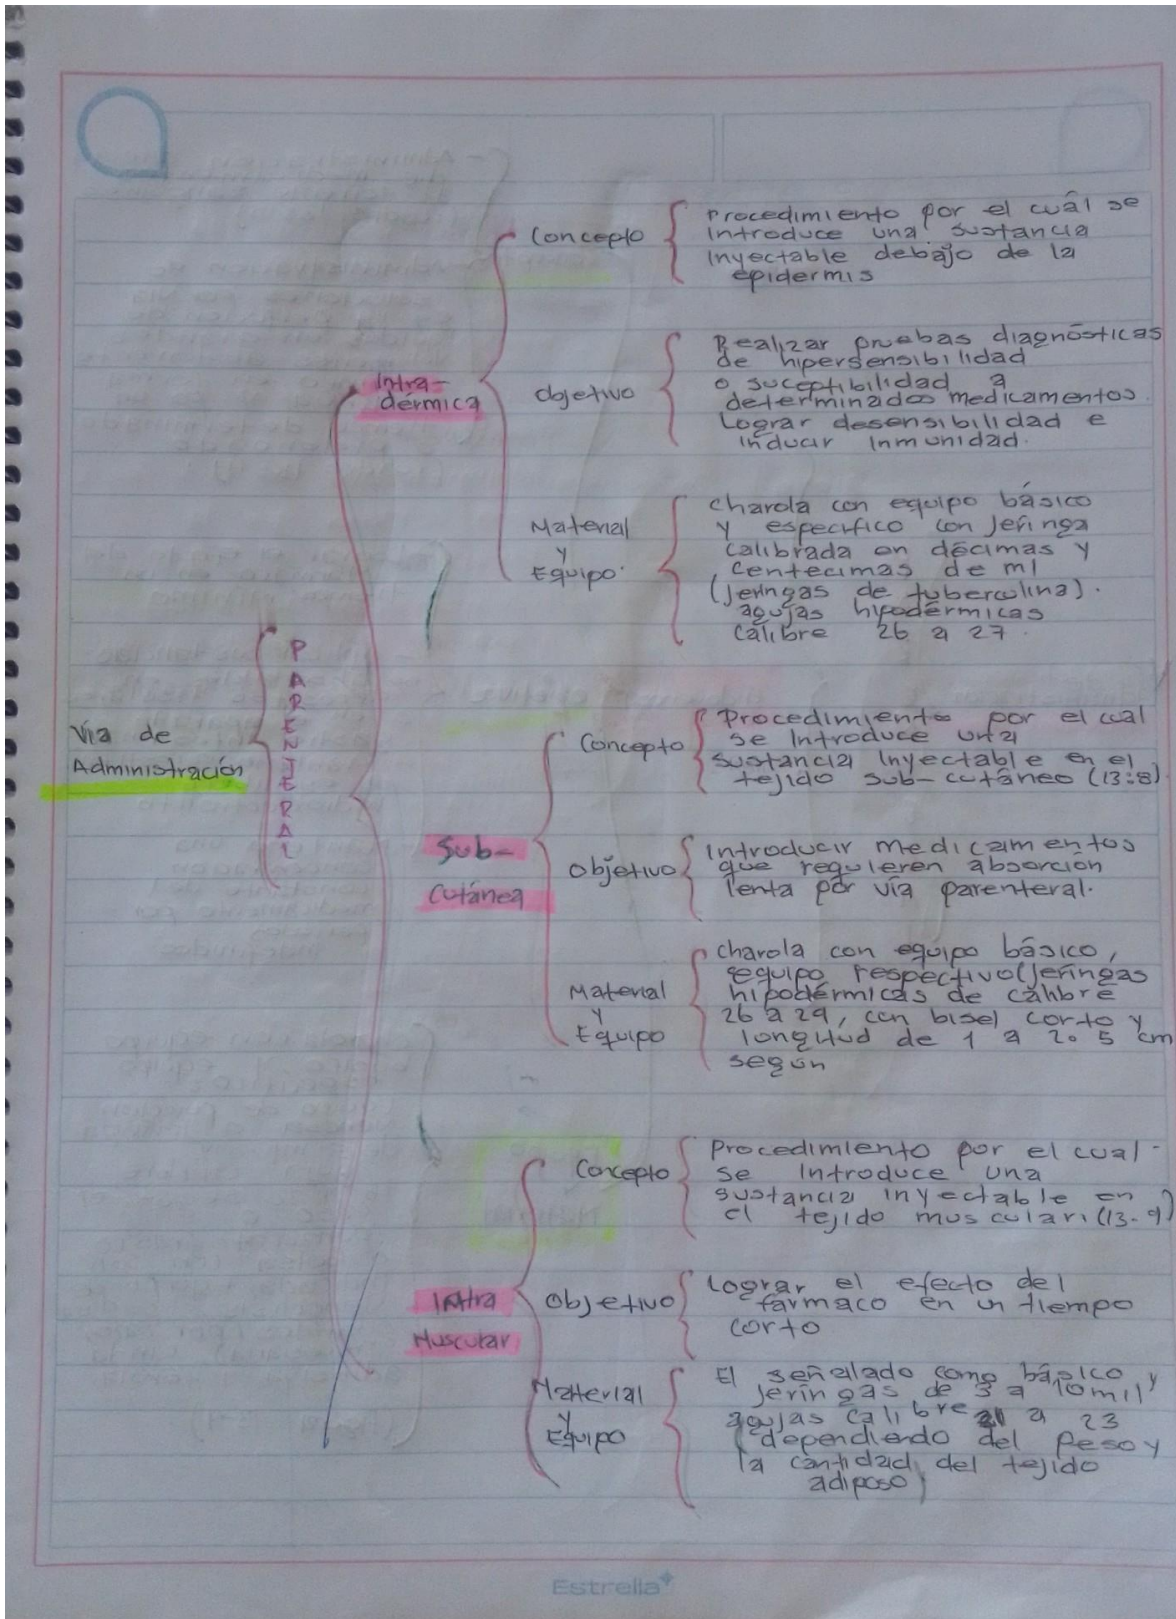 Vía de
Administración
PARENTERAL
Intra-
dérmica
Concepto
Procedimiento por el cuál se
introduce una sustancia
inyectable debajo de la
epidermis
Objetivo
Realizar pruebas diagnósticas
de hipersensibilidad
o suceptibilidad a
determinados medicamentos.
Lograr desensibilidad e
inducir inmunidad.
Material
y
Equipo.
charola con equipo básico
y especifico con Jeringa
calibrada en décimas y
centecimas de ml
(Jeringas de tuberculina).
agujas hipodérmicas
calibre 26 a 27.
Sub-
cutánea
Concepto
Procedimiento por el cual
se introduce una
sustancia inyectable en el
tejido sub-cutáneo (13:8).
Objetivo
Introducir medicamentos
que requieren absorción
lenta por vía parenteral.
Material
y
Equipo
charola con equipo básico,
equipo respectivo(Jeringas
hipodérmicas de calibre
26 a 29, con bisel corto y
longitud de 1 a 2.5 cm
según
Intra
Muscular
Concepto
Procedimiento por el cual
se introduce una
sustancia inyectable en
el tejido muscular. (13-9)
Objetivo
Lograr el efecto del
fármaco en un tiempo
corto
Material
y
Equipo
El señalado como básico y
Jeringas de 3 a 10 mil
agujas calibre a 23
(dependiendo del Peso y
la cantidad del tejido
adiposo)
Estrella